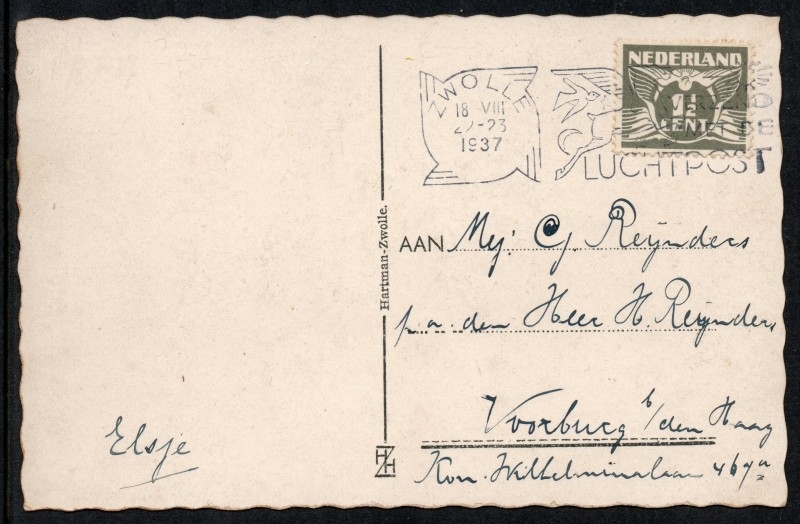 NEDERLAND
1½
CENT
ZWOLLE
18 VIII
22-23
1937
MET DE
LUCHTPOST
Hartman-Zwolle.
AAN Mej. Cj. Reijnders
p.a. den Heer H. Reijnders
Voorburg b/den Haag
Kon. Wilhelminalaan
Elsje
HZH